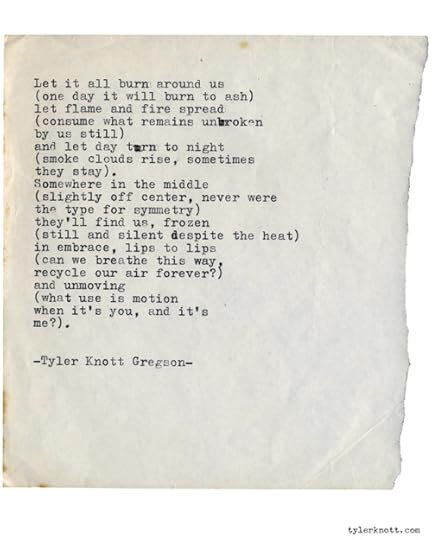 Let it all burn around us
(one day it will burn to ash)
let flame and fire spread
(consume what remains unbroken
by us still)
and let day turn to night
(smoke clouds rise, sometimes
they stay).
Somewhere in the middle
(slightly off center, never were
the type for symmetry)
they'll find us, frozen
(still and silent despite the heat)
in embrace, lips to lips
(can we breathe this way,
recycle our air forever?)
and unmoving
(what use is motion
when it's you, and it's
me?).
-Tyler Knott Gregson-
tylerknott.com